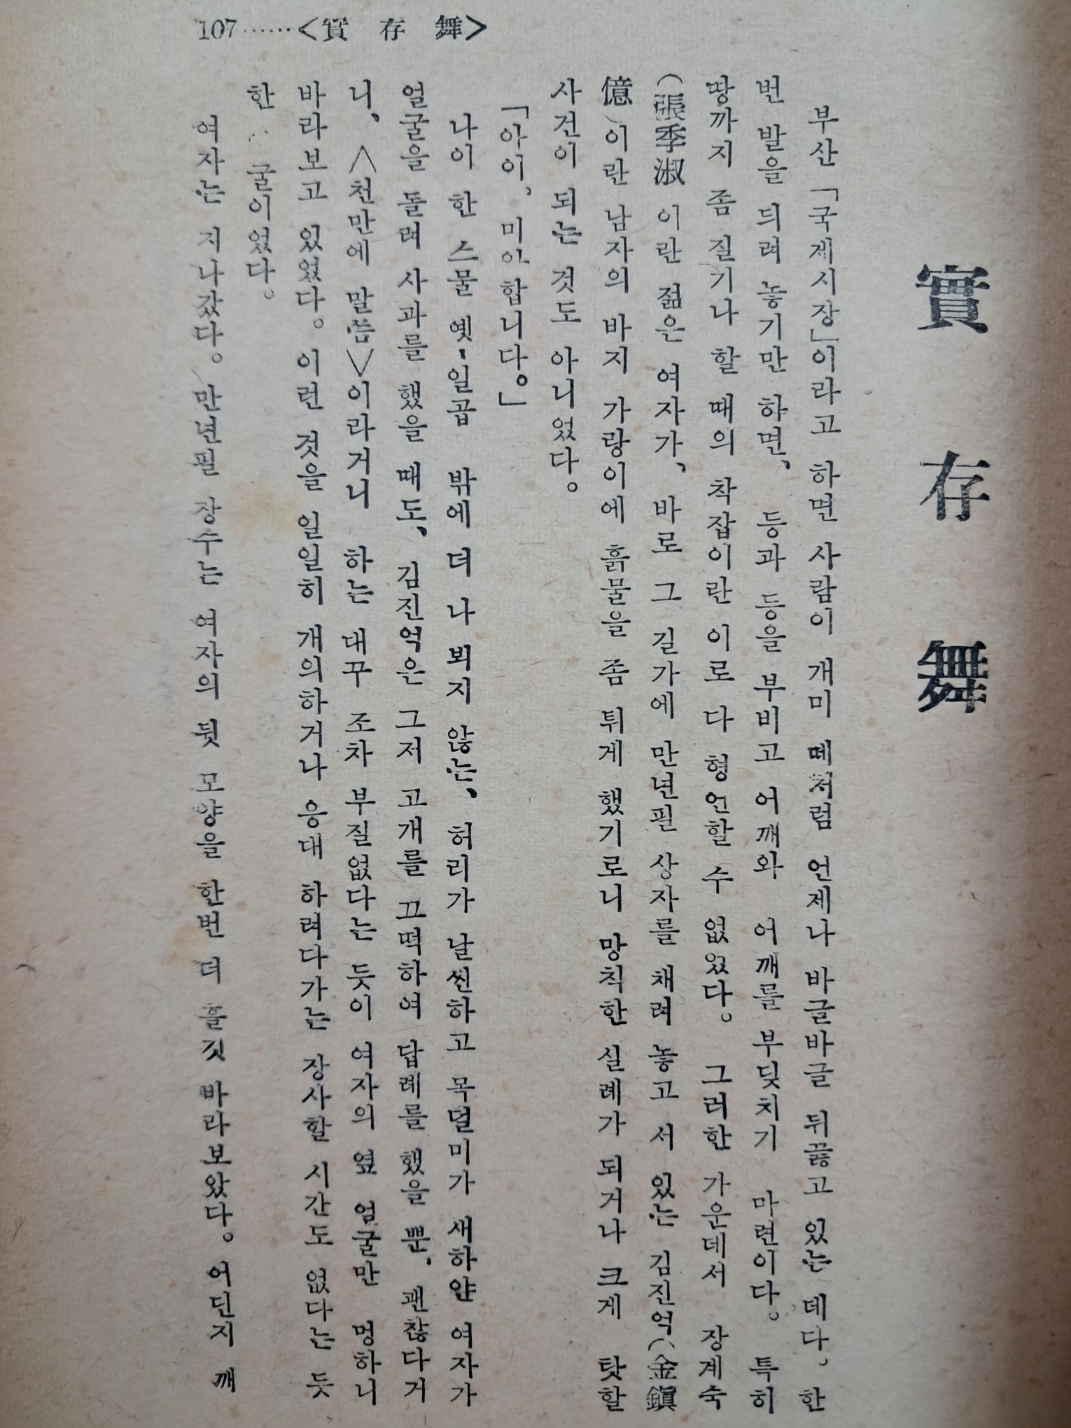 107……<實存舞>
實存舞
부산「국제시장」이라고 하면 사람이 개미 떼처럼 언제나 바글바글 뒤끓고 있는 데다、한
번 발을 듸려 놓기만 하면、등과 등을 부비고 어깨와 어깨를 부딪치기 마련이다。특히
땅까지 좀 질기나 할 때의 착잡이란 이로 다 형언할 수 없었다。그러한 가운데서 장계숙
(張季淑 이란 젊은 여자가、바로 그 길가에 만년필 상자를 채려 놓고 서 있는 김진억(金鎭
億)이란 남자의 바지 가랑이에 흙물을 좀 튀게 했기로니 망칙한 실례가 되거나 크게 탓할
사건이 되는 것도 아니었다。
「아이、미안합니다。」
나이 한 스물 옛·일곱 밖에 더 나 뵈지 않는、허리가 날씬하고 목덜미가 새하얀 여자가
얼굴을 돌려 사과를 했을 때도、김진억은 그저 고개를 끄떡하여 답례를 했을 뿐、괜찮다거
니、<천만에 말씀>이라거니 하는 대꾸 조차 부질없다는 듯이 여자의 옆 얼굴만 멍하니
바라보고 있었다。이런 것을 일일히 개의하거나 응대 하려다가는 장사할 시간도 없다는 듯
한 굴이었다。
여자는 지나갔다。만년필 장수는 여자의 뒷 모양을 한번 더 흘깃 바라보았다。어딘지 깨